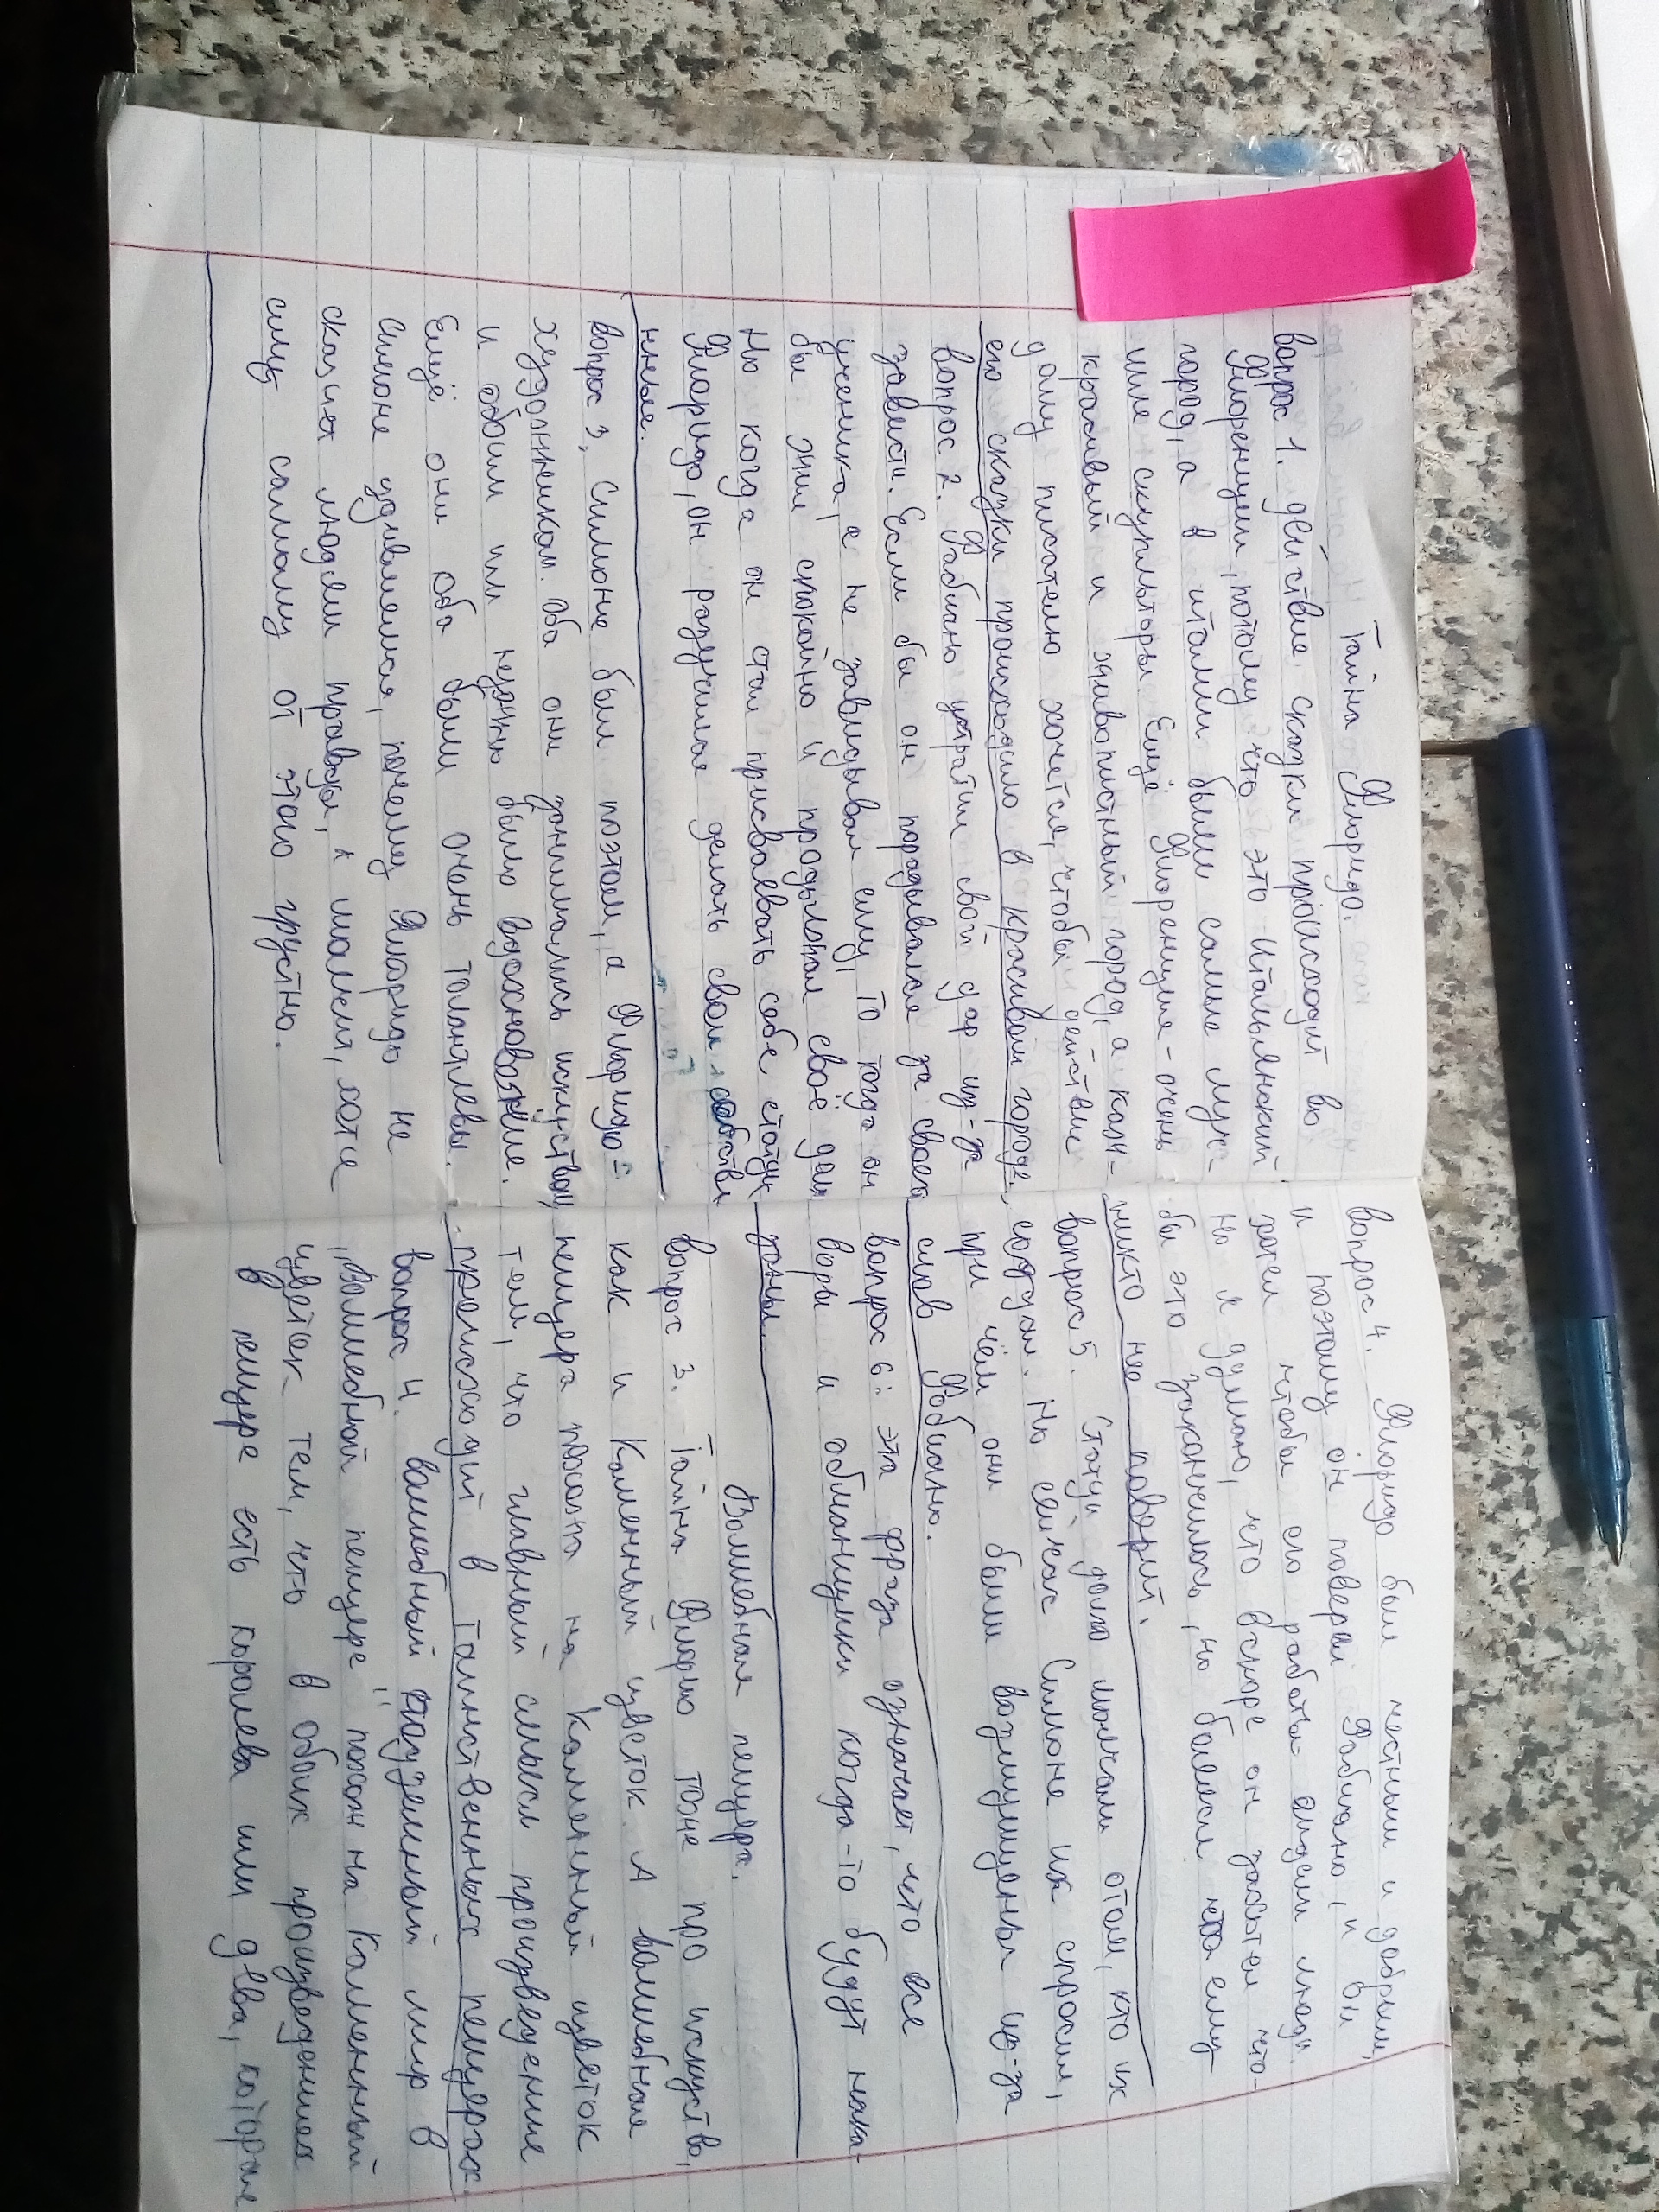 Тайна Флоридо.
вопрос 1. действие сказки происходит во
Флоренции, потому что это Итальянский
город, а в италии были самые луч-
шие скульпторы. Ещё Флоренция - очень
красивый и живописный город, а каж-
дому писателю хочется, чтобы действие
его сказки происходило в красивом городе.
вопрос 2. Фабиано утратил свой дар из-за
зависти. Если бы он порадывался за своего
ученика, а не завидывал ему, то тогда он
бы жил спокойно и продылжал своё дел
Но когда он стал присваевать себе статуи
Флоридо, он разучился делать свои собстве
нные.
вопрос 3. Симоне был поэтом, а Флоридо-
художником. Оба они занимались искуством,
и обоим им нужно было вдохновение.
Ещё они оба были очень талантлевы.
Симоне удивлялся, почему Флоридо не
скажет людям правды, а молчит, хотя
ему самому от этого грустно.
вопрос 4. Флоридо был честным и добрым,
и поэтому он поверил Фабиано, и он
хотел чтобы его работы видели люди.
Но я думаю, что вскоре он захотел что-
бы это закончилось, но боялся что ему
никто не поверит.
вопрос 5. Статуи долго молчали отом, кто их
создал. Но сейчас Симоне их спросил,
при чём они были возмущены из-за
слов Фабиано.
вопрос 6: эта фраза означает, что все
воры и обманщики когда-то будут нака-
заны.
Волшебная пещера.
вопрос 3. Тайна Флорио тоже про искуство,
как и Каменный цветок. А волшебная
пещера похожа на Каменный цветок
тем, что главный смысл произведение
происходит в таинственных пещерах
вопрос 4. волшебный подземный мир в
"Волшебной пещере" похож на Каменный
цветок тем, что в обоих произведениях
в пещере есть королева или дева, которая